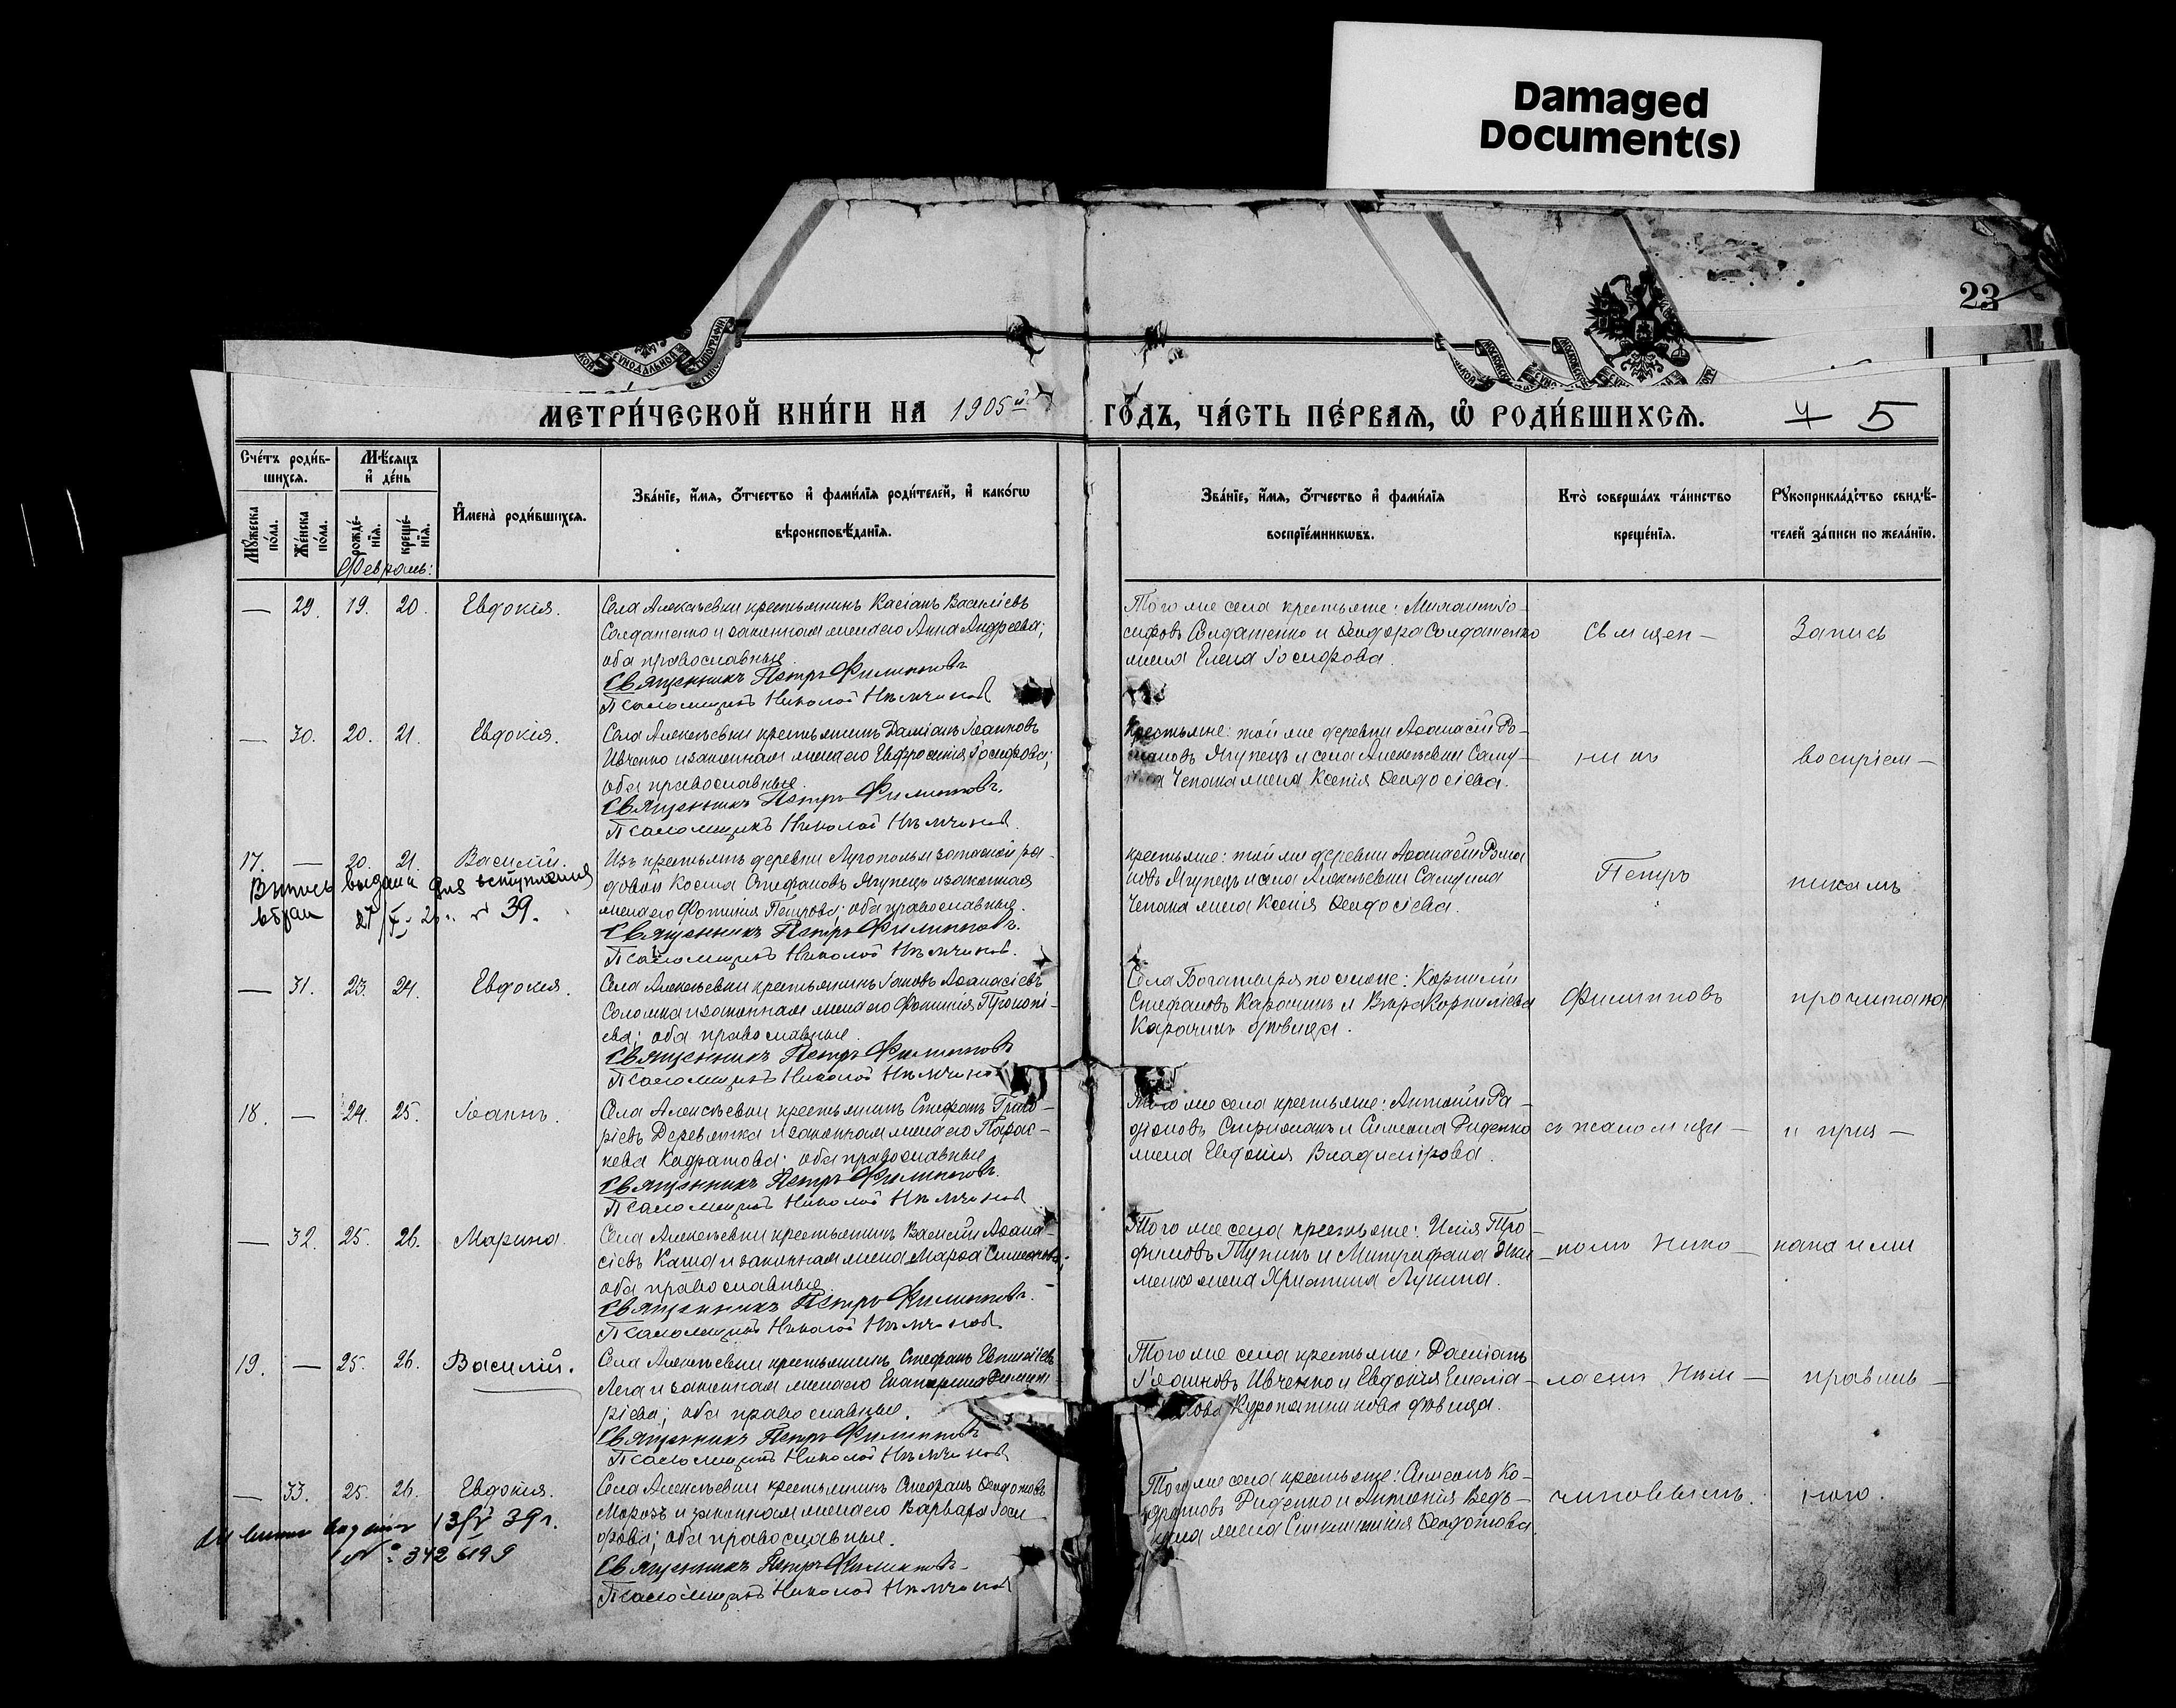 Damaged
Document(s)
23
МЕТРИ́ЧЕСКОЙ КНИ́ГИ НА 1905й
ГО́ДЪ, ЧА́СТЬ ПЕ́РВАѦ, Ѡ҆ РОДИ́ВШИХСѦ.
4 5
Сче́тъ роди́в-
шихсѧ.
Мѣ́сѧцъ
и҆ де́нь
Мꙋ́жеска
по́ла.
Же́нска
по́ла.
рожде́-
нїѧ.
креще́-
нїѧ.
И҆мена̀ роди́вшихсѧ.
Зва́нїе, и҆́мѧ, ѻ҆́тчество и҆ фами́лїѧ роди́телей, и҆ како́гѡ
вѣроисповѣ́данїѧ.
Зва́нїе, и҆́мѧ, ѻ҆́тчество и҆ фами́лїѧ
воспрїе́мникѡвъ.
Кто̀ соверша́лъ та́инство
креще́нїѧ.
Рꙋкоприкла́дство свидѣ́-
телей за́писи по жела́нїю.
Февраль:
— 29. 19. 20. Евдокія.
Села Алексѣевки крестьянинъ Касіанъ Василіевъ
Солдатенко и законная жена его Анна Андреева;
оба православные.
Священникъ Петръ Филипповъ
Псаломщикъ Николай Нѣмчинов
Того же села крестьяне: Михаилъ Іо-
сифовъ Солдатенко и Ѳеодора Солдатенко
жена Елена Іосифова.
Священ-
Запись
— 30. 20. 21. Евдокія.
Села Алексѣевки крестьянинъ Даміанъ Іоанновъ
Ивченко и законная жена его Евфросинія Іосифова;
оба православные.
Священникъ Петръ Филипповъ.
Псаломщикъ Николай Нѣмчинов.
Крестьяне: той же деревни Аѳанасій Ро-
мановъ Ягупецъ и села Алексѣевки Саму-
Чепака жена Ксенія Ѳеодосіева.
никъ
воспріем-
17. — 20. 21. Василій.
Выпись выдана для вступления
в брак 27 39.
Изъ крестьянъ деревни Лугополья запасной ря-
довой Косма Стефановъ Ягупецъ и законная
жена его Фотинія Петрова; оба православные.
Священникъ Петръ Филипповъ.
Псаломщикъ Николай Нѣмчинов.
крестьяне: той же деревни Аѳанасій Рома
новъ Ягупецъ и села Алексѣевки Самуила
Чепака жена Ксенія Ѳеодосіева.
Петръ
никамъ
— 31. 23. 24. Евдокия.
Села Алексѣевки крестьянинъ Іаковъ Аѳанасіевъ
Соломка и законная жена его Фотинія Прокопі-
ева; оба православные.
Священникъ Петръ Филипповъ
Псаломщикъ Николай Нѣмчинов
Села Богатыря поселяне: Корнилій
Стефановъ Карачинъ и Вѣра Корнилієва
Карачинъ дѣвица.
Филипповъ
прочитана
18. — 24. 25. Іоаннъ.
Села Алексѣевки крестьянинъ Стефанъ Григо-
ріевъ Деревянка и законная жена его Парас-
кева Кодратова; оба православные.
Священникъ Петръ Филипповъ.
Псаломщикъ Николай Нѣмчинов
Того же села крестьяне: Антоній Ра-
діоновъ и Симеона Диденко
жена Евдокія Владимірова.
съ псаломщи-
и приз-
— 32. 25. 26. Марина.
Села Алексѣевки крестьянинъ Василій Аѳана-
сіевъ Каша и законная жена Марѳа Симеонова;
оба православные
Священникъ Петръ Филипповъ.
Псаломщикъ Николай Нѣмчинов.
Того же села крестьяне: Илія Тро-
фимовъ Тупикъ и Митрофана Яки-
менко жена Христина Лукина.
комъ Нико-
нана ими
19. — 25. 26. Василій.
Села Алексѣевки крестьянинъ Стефанъ Евпліевъ
Лега и законная жена его Екатерина Димит-
ріева; оба православные.
Священникъ Петръ Филипповъ
Псаломщикъ Николай Нѣмчинов
Того же села крестьяне: Даміанъ
Іоанновъ Ивченко и Евдокія
Куропятникова дѣвица.
лаемъ Нѣм-
правиль-
— 33. 25. 26. Евдокія.
13/V 39 г.
№ 342699
Села Алексѣевки крестьянинъ Стефанъ Ѳеодотовъ
Морозъ и законная жена его Варвара Іоси-
фова; оба православные.
Священникъ Петръ Филипповъ-
Псаломщикъ Николай Нѣмчинов
Того же села крестьяне: Симеонъ Ко-
дратовъ Диденко и Антонія Ведь-
жена Ѳеодотова.
чиновымъ.
ною.